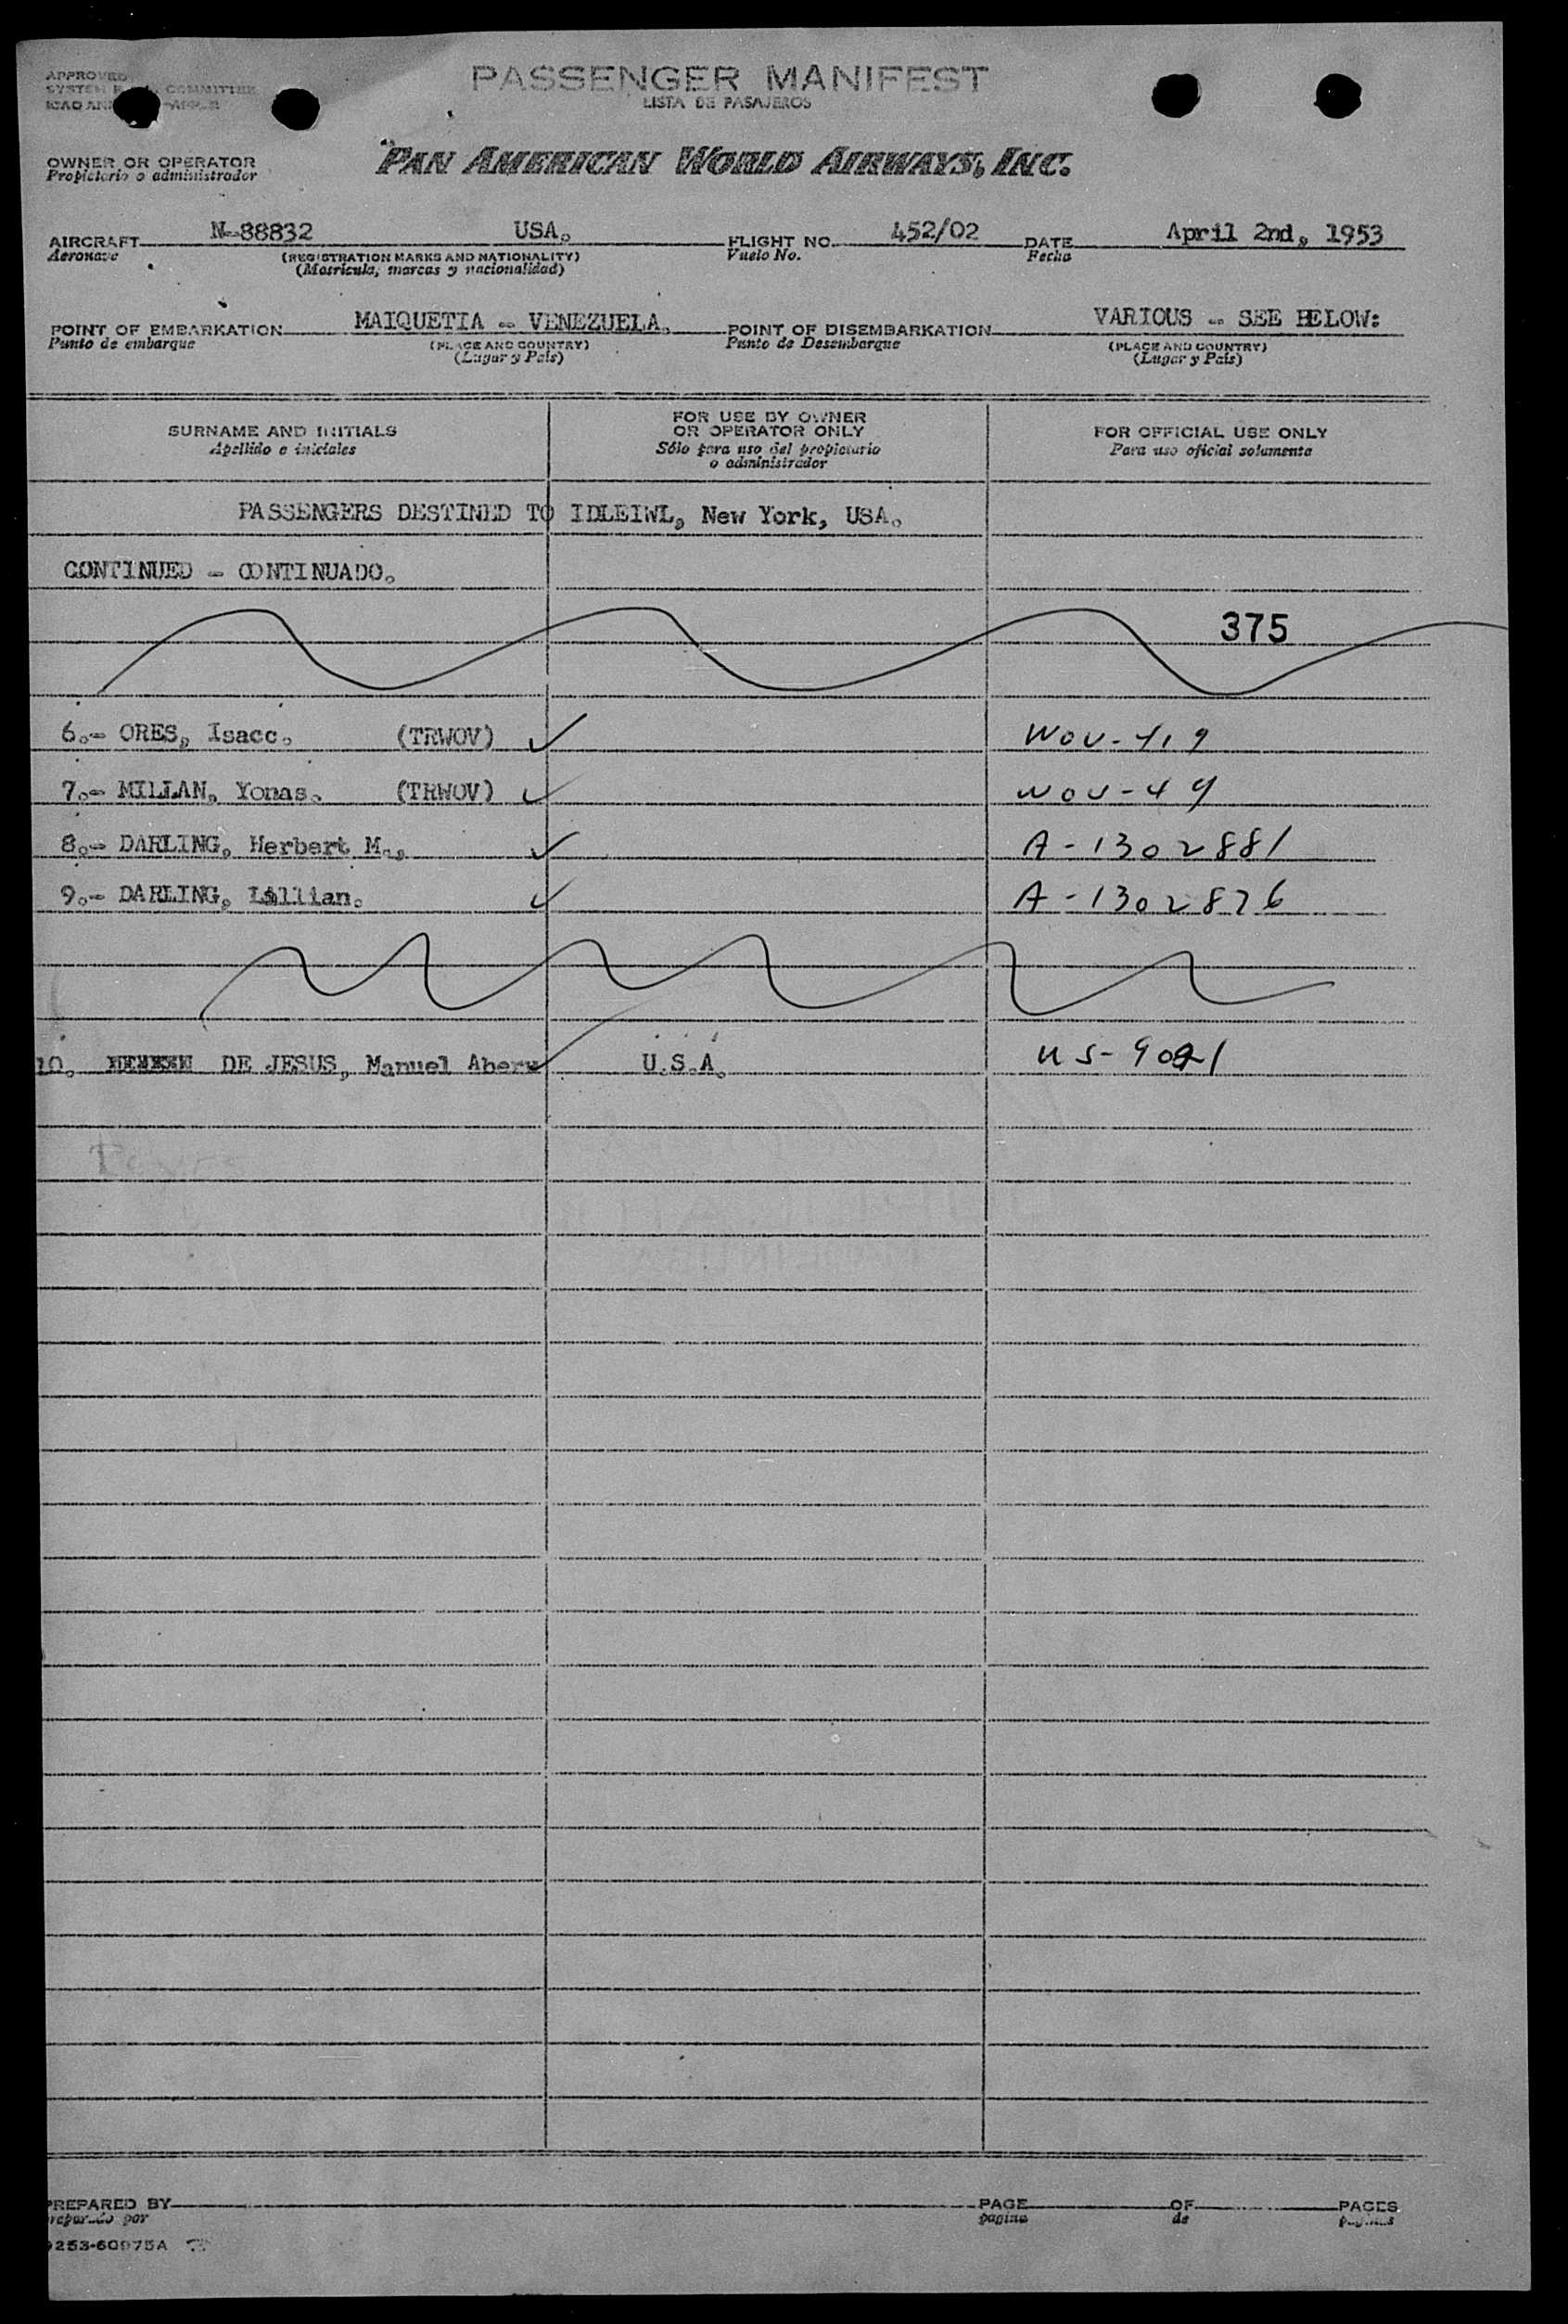 APPROVED
SYSTEM COMMITTEE
ICAO
PASSENGER MANIFEST
LISTA DE PASAJEROS
OWNER OR OPERATOR
Propietario o administrador
PAN AMERICAN WORLD AIRWAYS, INC.
AIRCRAFT N-88832 USA. FLIGHT NO. 452/02 DATE April 2nd, 1953
Aeronave (REGISTRATION MARKS AND NATIONALITY) Vuelo No. Fecha
(Matricula, marcas y nacionalidad)
POINT OF EMBARKATION MAIQUETIA - VENEZUELA. POINT OF DISEMBARKATION VARIOUS - SEE BELOW:
Punto de embarque (PLACE AND COUNTRY) Punto de Desembarque (PLACE AND COUNTRY)
(Lugar y País) (Lugar y País)
SURNAME AND INITIALS FOR USE BY OWNER OR OPERATOR ONLY FOR OFFICIAL USE ONLY
Apellido e iniciales Sólo para uso del propietario o administrador Para uso oficial solamente
PASSENGERS DESTINED TO IDLEIWL, New York, USA.
CONTINUED - CONTINUADO.
375
6.- ORES, Isacc. (TRWOV) ✓ WOV-419
7.- MILLAN, Yonas. (TRWOV) ✓ WOV-49
8.- DARLING, Herbert M., ✓ A-1302881
9.- DARLING, Lillian. ✓ A-1302876
10. DE JESUS, Manuel Abers U.S.A. US-9021
PREPARED BY PAGE OF PAGES
preparado por pagina de paginas
9253-60975A